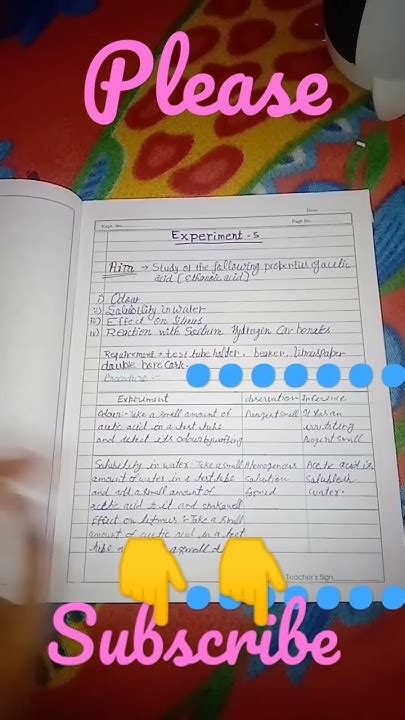 Please
Date
Expt. No.
Page No.
Experiment - 5
Aim → Study of the following properties of acetic
acid [ethanoic acid]
i) Odour
ii) Solubility in water
iii) Effect on litmus
iv) Reaction with Sodium Hydrogen Carbonate
Requirement → test tube holder, beaker, litmus paper
double bore cork.
Procedure :-
Experiment observation Inference
Odour:- Take a small amount of Pungent smell It has an
acetic acid in a test tube irritating
and detect its odour by wafting Pungent smell
Solubility in water: Take a small Homogenous Acetic acid is
amount of water in a test tube Solution Soluble in
and add a small amount of formed water.
acetic acid to it and shake well
Effect on litmus :- Take a small
amount of acetic acid in a test
tube
Teacher's Sign
Subscribe